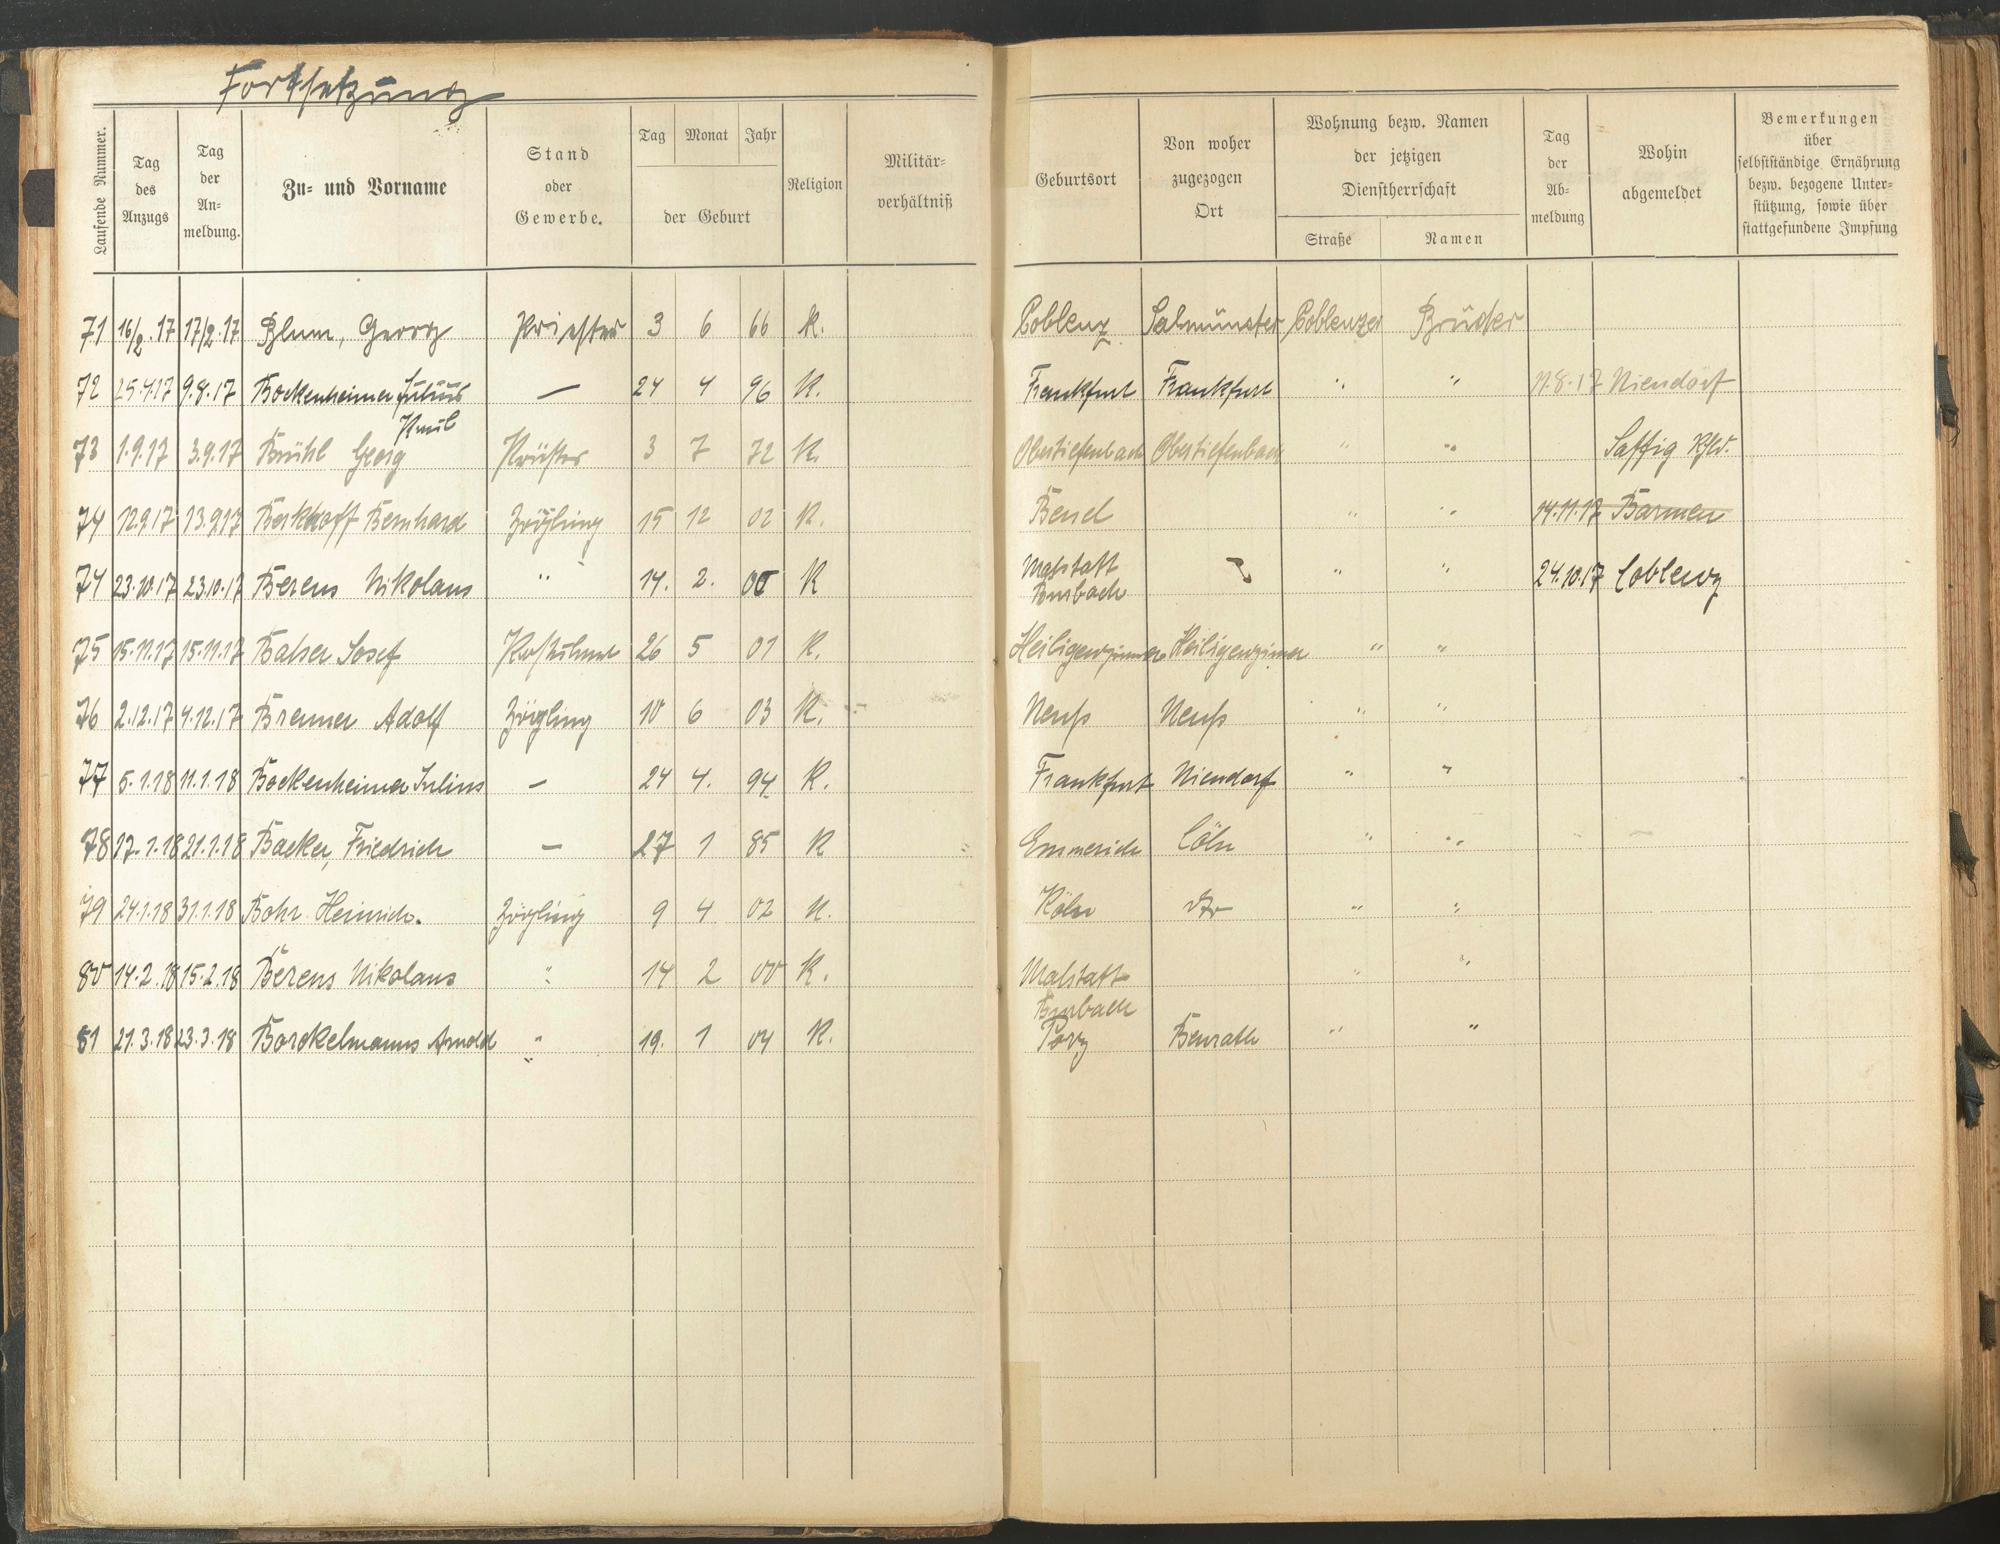 Fortsetzung
Laufende Nummer. Tag des Anzugs Tag der An- meldung. Zu- und Vorname Stand oder Gewerbe. Tag Monat Jahr der Geburt Religion Militär- verhältniß Geburtsort Von woher zugezogen Ort Wohnung bezw. Namen der jetzigen Dienstherrschaft Straße Namen Tag der Ab- meldung Wohin abgemeldet Bemerkungen über selbstständige Ernährung bezw. bezogene Unter- stützung, sowie über stattgefundene Impfung
71 16/2.17 17/2.17 Blum, Georg Priester 3 6 66 K. Coblenz Salmünster Coblenzer Brüder
72 25.4.17 9.8.17 Bockenheimer Julius — 24 4 96 K. Frankfurt Frankfurt " " 11.8.17 Niendorf
73 1.9.17 3.9.17 Brühl Georg Priester 3 7 72 K. Obertiefenbach Obertiefenbach " " Saffig
74 12.9.17 13.9.17 Berkhoff Bernhard Zögling 15 12 02 K. " " 14.11.17 Barmen
74 23.10.17 23.10.17 Berens Nikolaus " 14. 2. 00 K Malstatt Burbach " " 24.10.17 Coblenz
75 15.11.17 15.11.17 Balser Josef 26 5 01 K. Heiligenzimmer Heiligenzimmer " "
76 2.12.17 4.12.17 Brenner Adolf Zögling 10 6 03 K. Neuß Neuß " "
77 5.1.18 11.1.18 Bockenheimer Julius — 24 4. 94 K. Frankfurt Niendorf " "
78 17.1.18 21.1.18 Backer, Friedrich — 27 1 85 K Emmerich Cöln " "
79 24.1.18 31.1.18 Bohr Heinrich. Zögling 9 4 02 K. Köln " "
80 14.2.18 15.2.18 Berens Nikolaus " 14 2 00 K. Malstatt Burbach " "
81 21.3.18 23.3.18 Borckelmanns Arnold " 19. 1 04 K. Porz Benrath " "